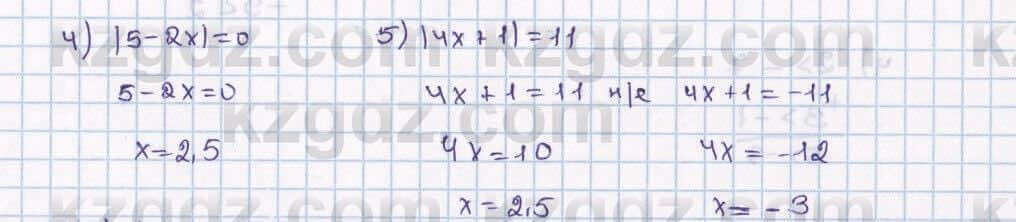 4) |5-2x|=0 5) |4x+1|=11
5-2x=0 4x+1=11 н/е 4x+1=-11
x=2,5 4x=10 4x=-12
x=2,5 x=-3
kzgdz.com